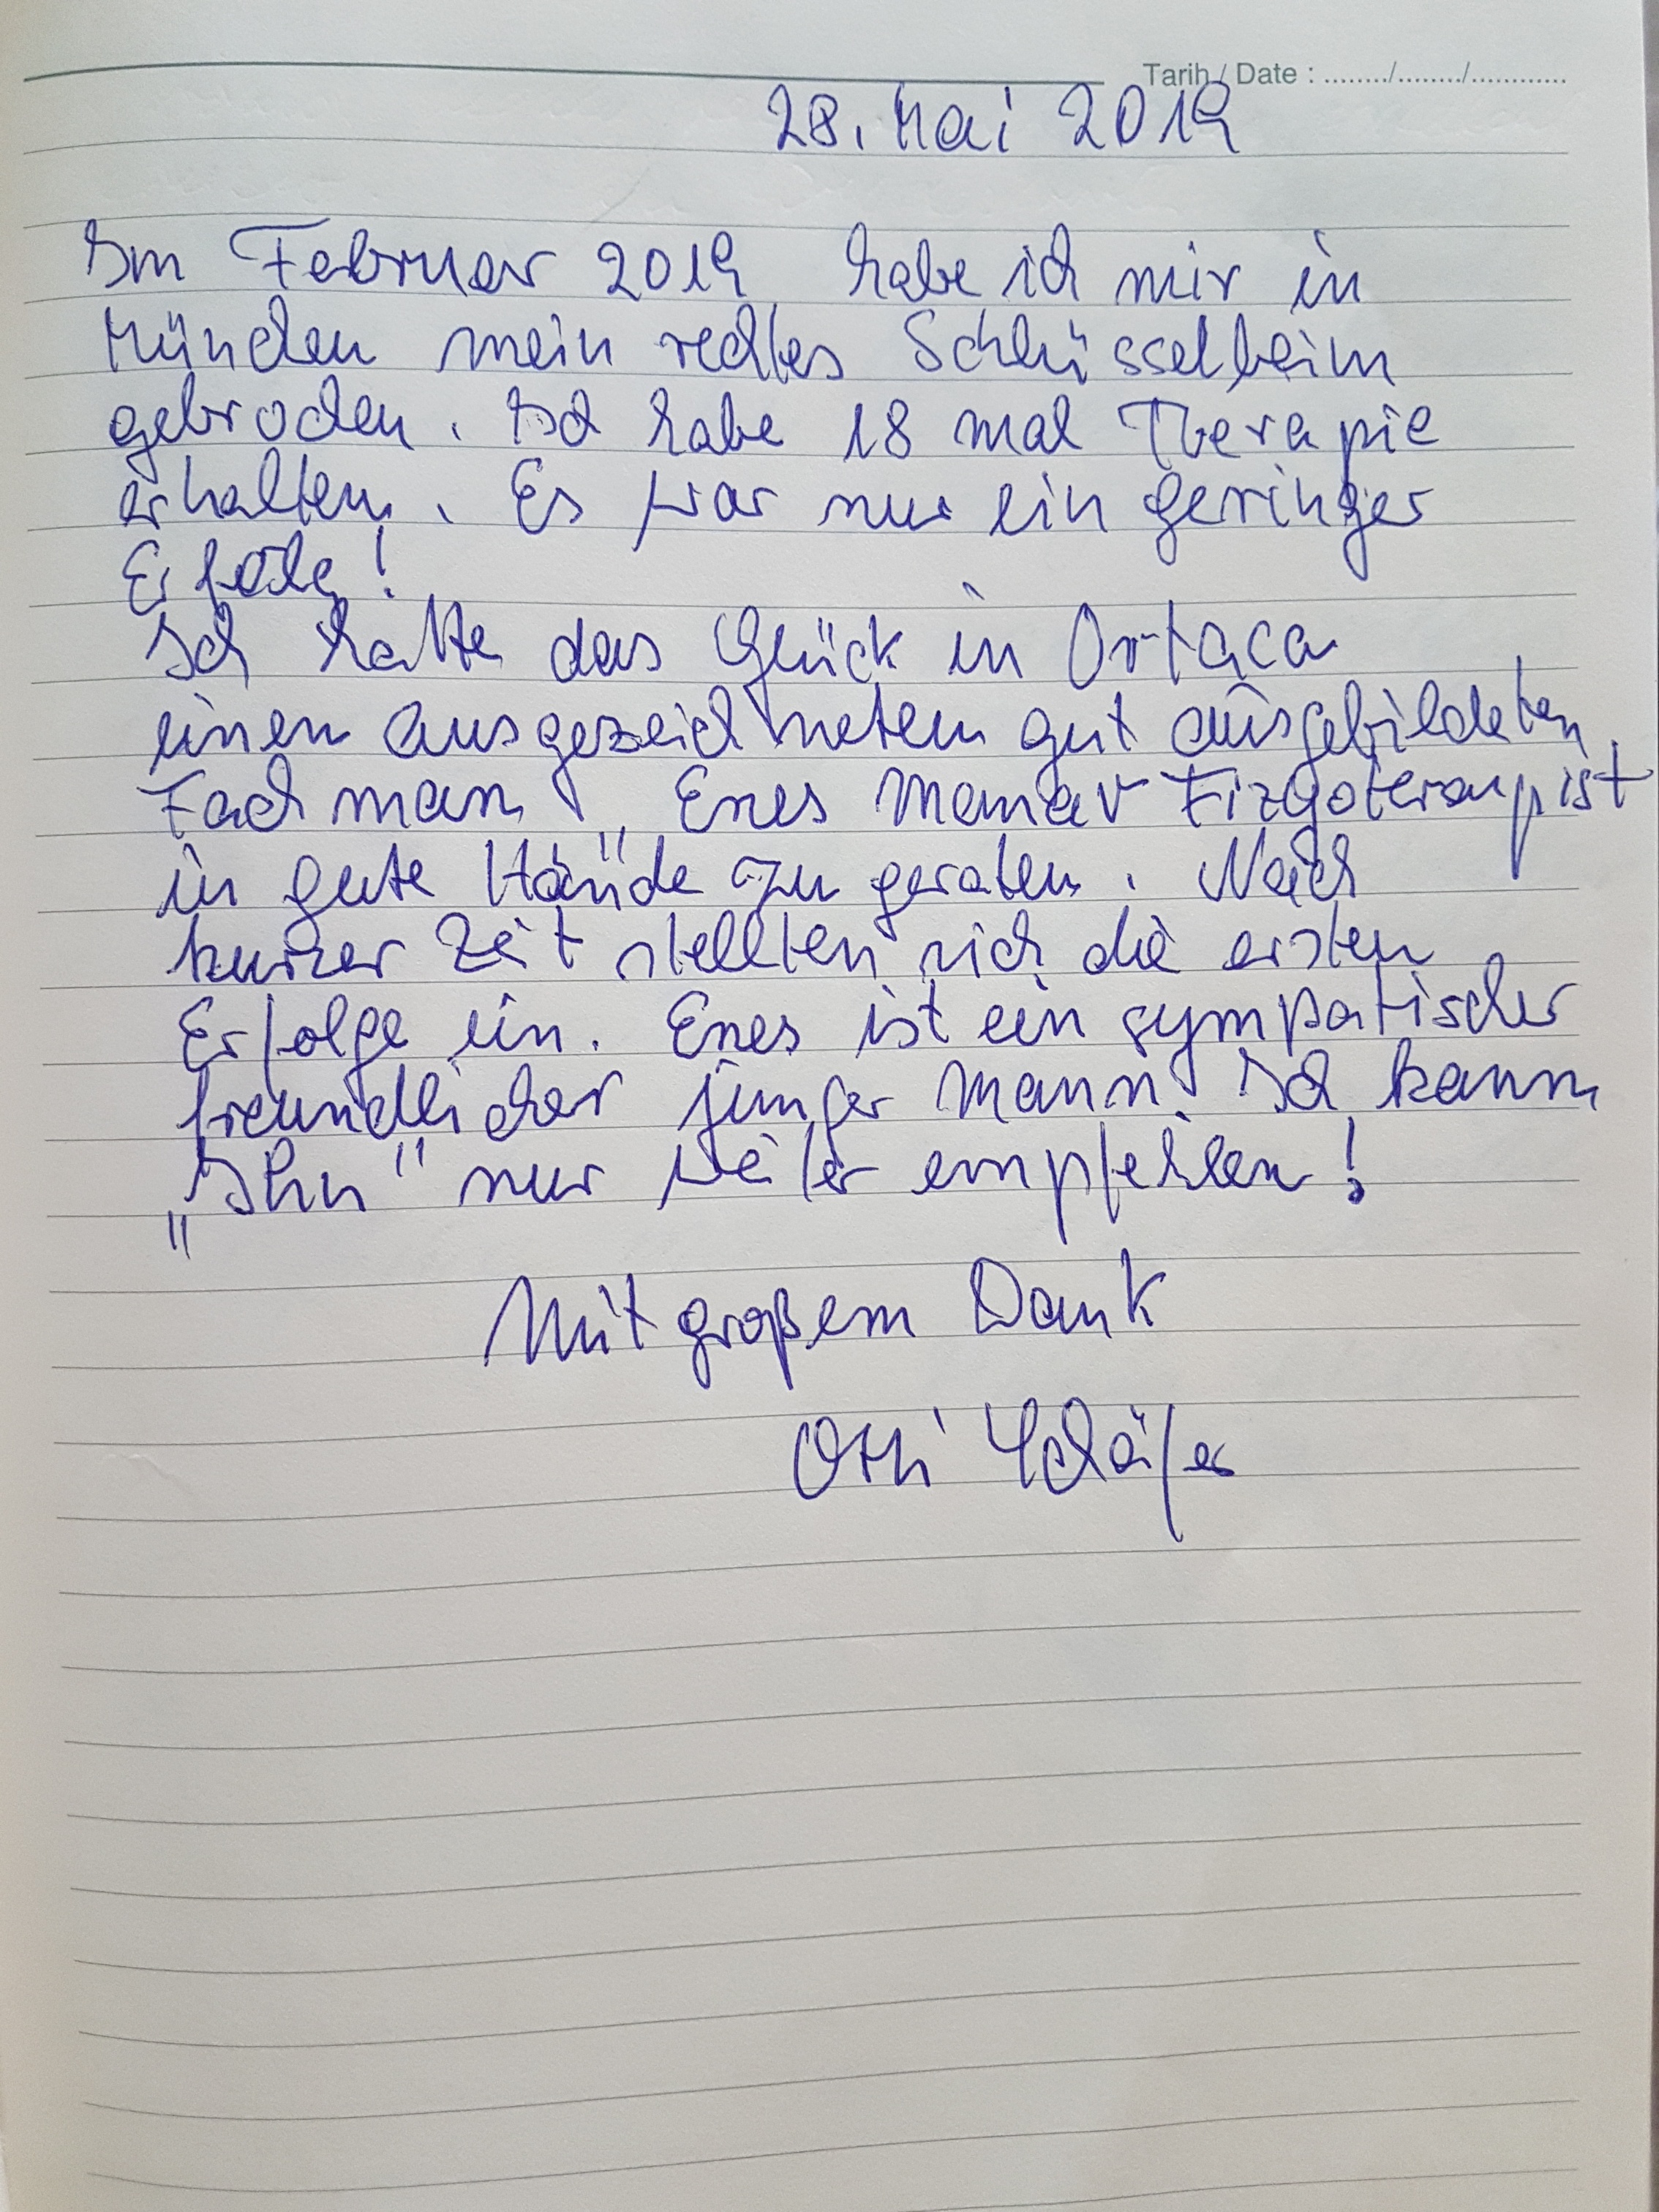 Tarih / Date : ......../......../............
28. Mai 2019
Im Februar 2019 habe ich mir in
München mein rechtes Schlüsselbeim
gebrochen. Ich habe 18 mal Therapie
erhalten. Es war nur ein geringer
Erfolg!
Ich hatte das Glück in Ortaca
einen ausgezeichnetem gut ausgebildeten
Fachmann, Enes Manav Fizyoterapist
in gute Hände zu geraten. Nach
kurzer Zeit stellten sich die ersten
Erfolge ein. Enes ist ein sympatischer
freundlicher junger Mann. Ich kann
„Ihn" nur weiter empfehlen!
Mit großem Dank
Otti Schäfer